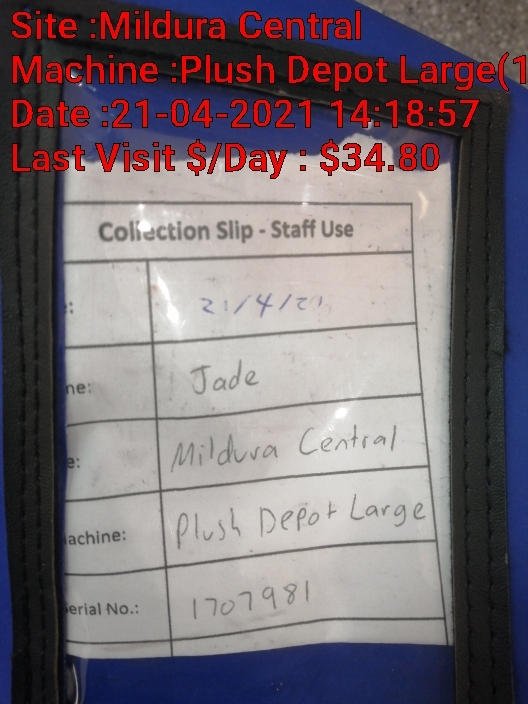 Site :Mildura Central
Machine :Plush Depot Large(1
Date :21-04-2021 14:18:57
Last Visit $/Day : $34.80
Collection Slip - Staff Use
: 21/4/21
ne: Jade
e: Mildura Central
achine: Plush Depot Large
erial No.: 1707981